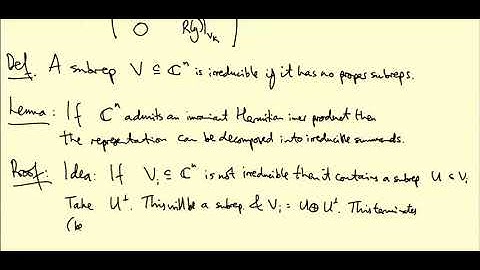 0 R(g)|V_K
Def. A subrep V ⊆ ℂⁿ is irreducible if it has no proper subreps.
Lemma: If ℂⁿ admits an invariant Hermitian inner product then
the representation can be decomposed into irreducible summands.
Proof: Idea: If Vᵢ ⊆ ℂⁿ is not irreducible then it contains a subrep U ⊂ Vᵢ
Take U^⊥. This will be a subrep & Vᵢ = U ⊕ U^⊥. This terminates
(be